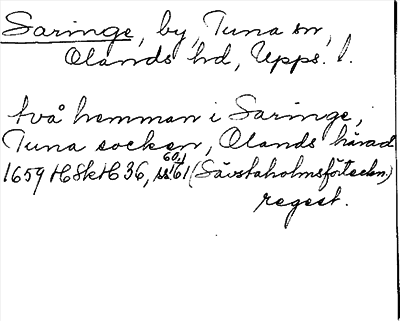 Saringe, by, Tuna sn,
Olands hd, Upps. l.
två hemman i Saringe,
Tuna socken, Olands härad
1659 HSkH 36, ss 60, 61 (Sävstaholmsförteckn)
regest.